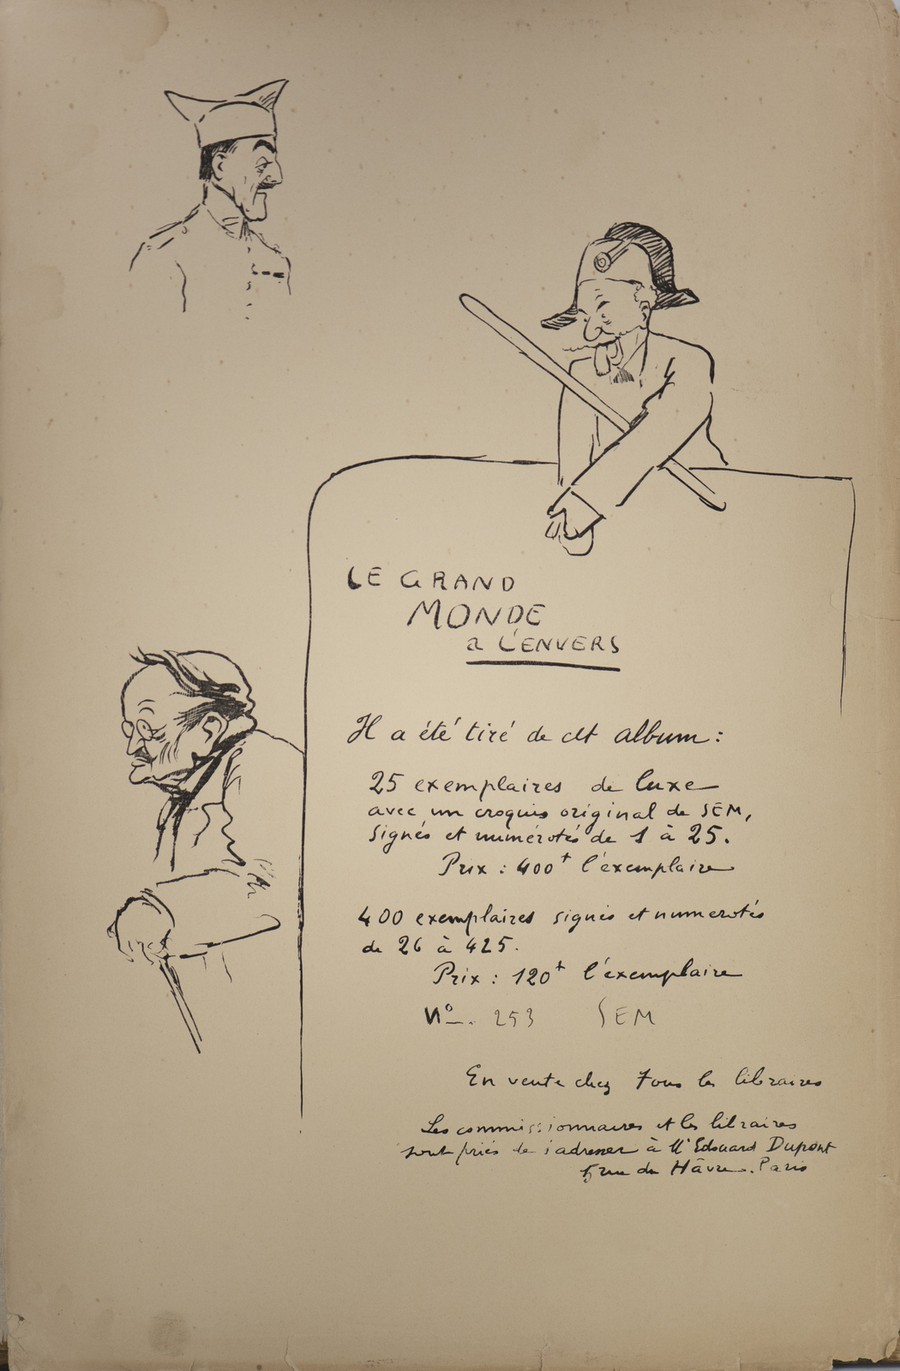 LE GRAND
MONDE
a L'ENVERS
Il a été tiré de cet album :
25 exemplaires de luxe
avec un croquis original de SEM,
signés et numérotés de 1 à 25.
Prix : 400f l'exemplaire
400 exemplaires signés et numerotés
de 26 à 425.
Prix : 120f l'exemplaire
No. 253 SEM
En vente chez tous les libraires
Les commissionnaires et les libraires
sont priés de s'adresser à Mr Edouard Dupont
5 rue du Hâvre. Paris